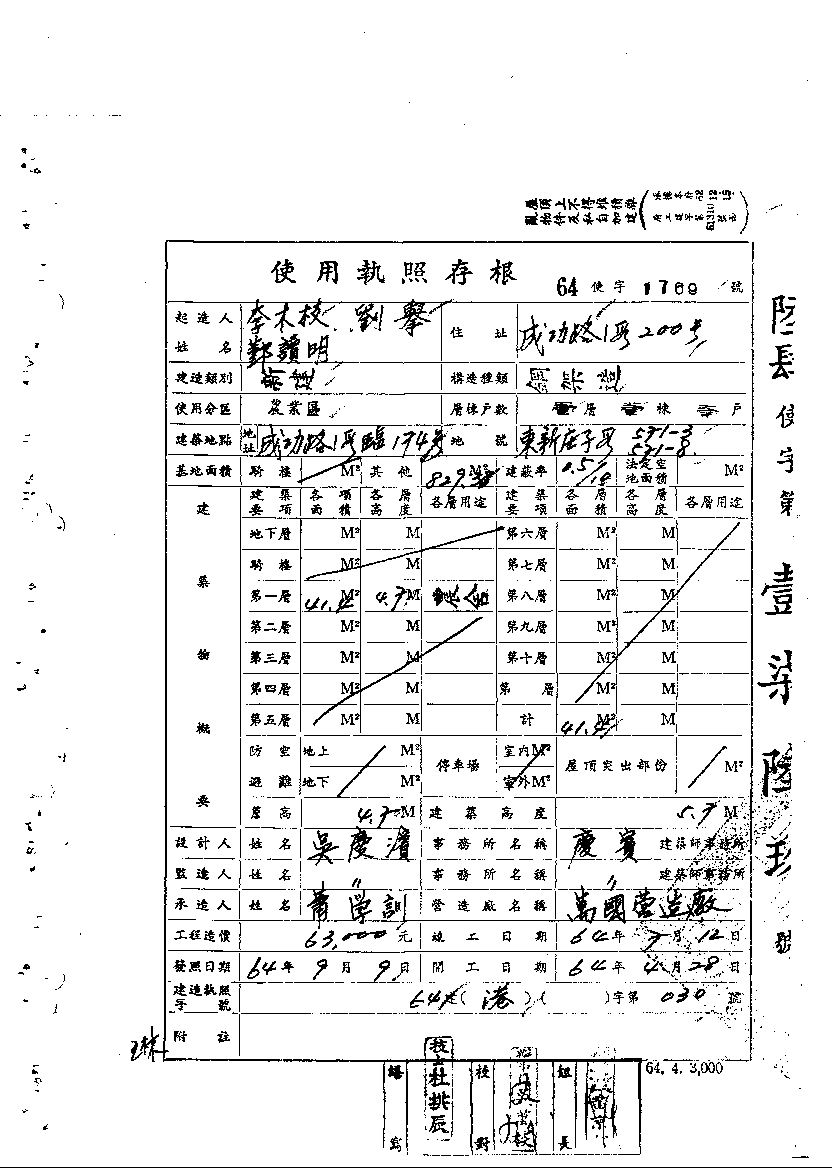 屋頂上不得堆積雜
亂物件及私自加建
使用執照存根
64 使字 1769 號
起造人
姓名
李木枝 劉舉
鄭讀明
住址
成功路1段200号
建造類別
構造種類
鋼架造
使用分區
農業區
層棟戶數
壹層 壹棟 壹戶
建築地點
地址
成功路1段臨174号
地號
東新庄子段 571-3
571-8
基地面積 騎樓 M² 其他 829.38 M² 建蔽率 法定空地面積 M²
建築物概要
建築要項 各項面積 各層高度 各層用途 建築要項 各層面積 各層高度 各層用途
地下層 M² M 第六層 M² M
騎樓 M² M 第七層 M² M
第一層 41.4 M² 4.7 M 第八層 M² M
第二層 M² M 第九層 M² M
第三層 M² M 第十層 M² M
第四層 M² M 第 層 M² M
第五層 M² M 計 41.4 M²
防空 地上 M² 停車場 室內 M² 屋頂突出部份 M²
避難 地下 M² 室外 M²
簷高 4.70 M 建築高度 5.7 M
設計人 姓名 吳慶濱 事務所名稱 慶賓 建築師事務所
監造人 姓名 〃 事務所名稱 〃 建築師事務所
承造人 姓名 蕭學訓 營造廠名稱 萬國營造廠
工程造價 63,000 元 竣工日期 64年 7月 12日
發照日期 64年 9月 9日 開工日期 64年 4月 28日
建造執照字號 64 (港)( )字第 030 號
附註
64. 4. 3,000
繕寫
技士杜挑辰
校對
組長
使字第壹柒陸玖號